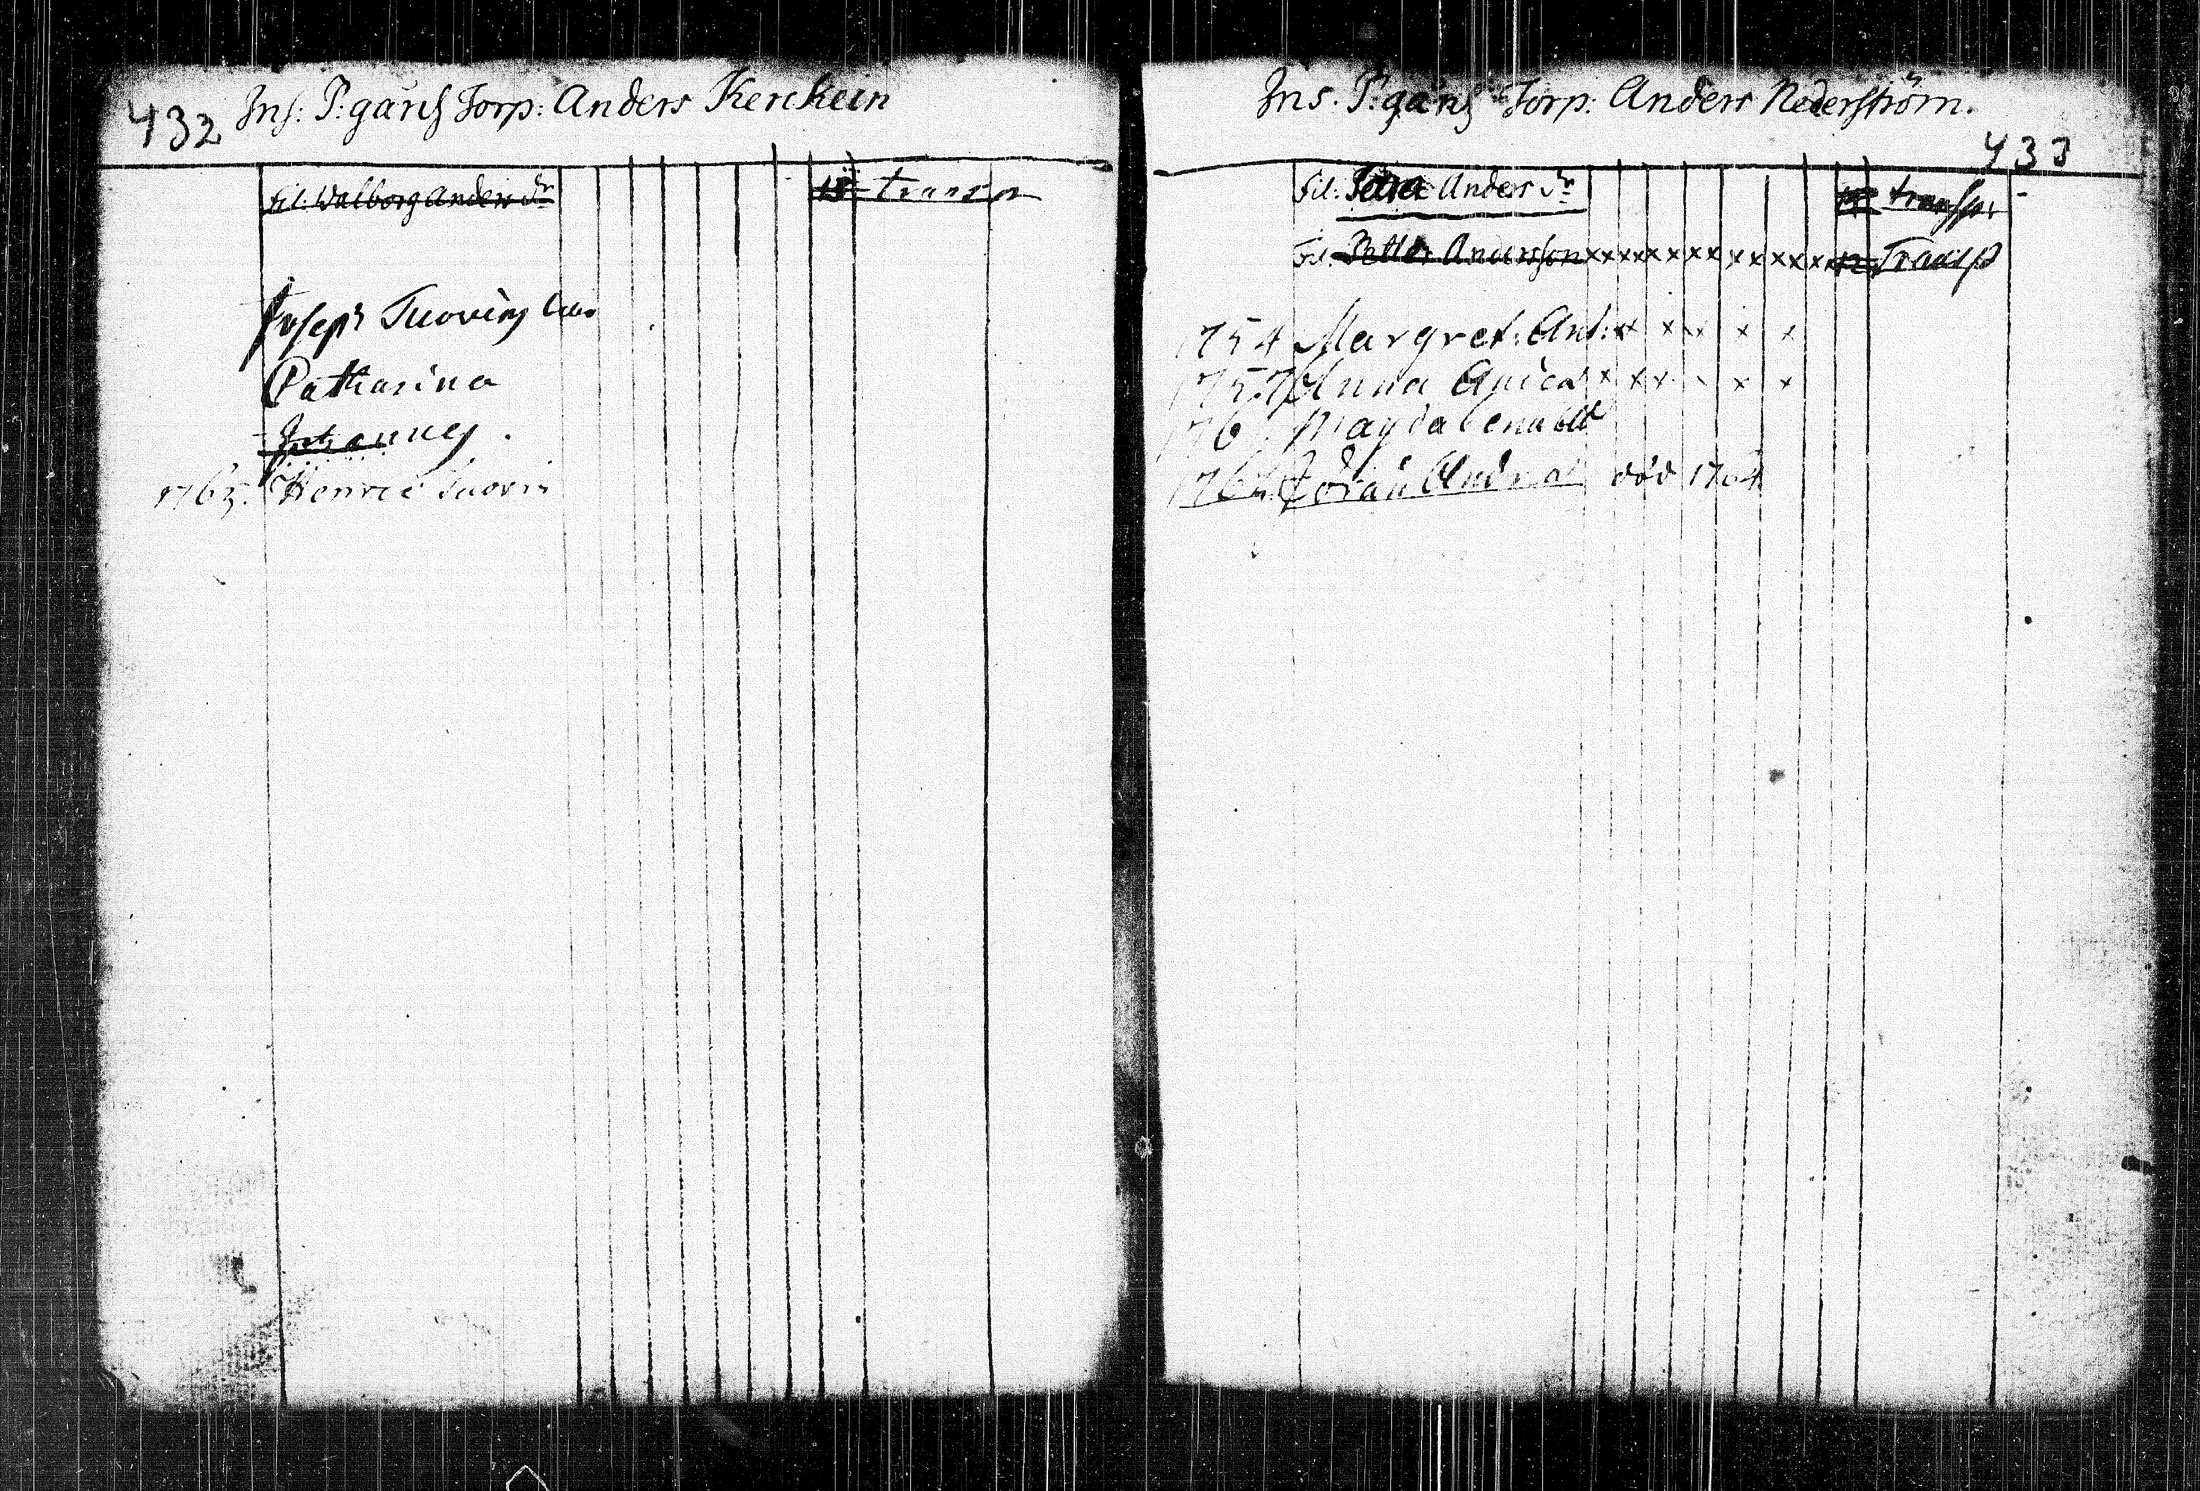 432 Ins: P:gånß Torp: Anders Kerckein
fil: Walborg Anders Dr 18 transp
Joseph Tuovin
Catharina
Johannes.
1763. Henric Tuovin
Ins. P:gånß Torp: Anders Nederström.
433
fil: Petra Anders Dr transp:
fil: Petter Andersson xxxxxxxxxxxxxx 12 Transp
1754 Margret: And: xx x x x x
1757 Anna Andrs x xx x x x
176 Magdalena
1764 Jöran Andrs död 1764